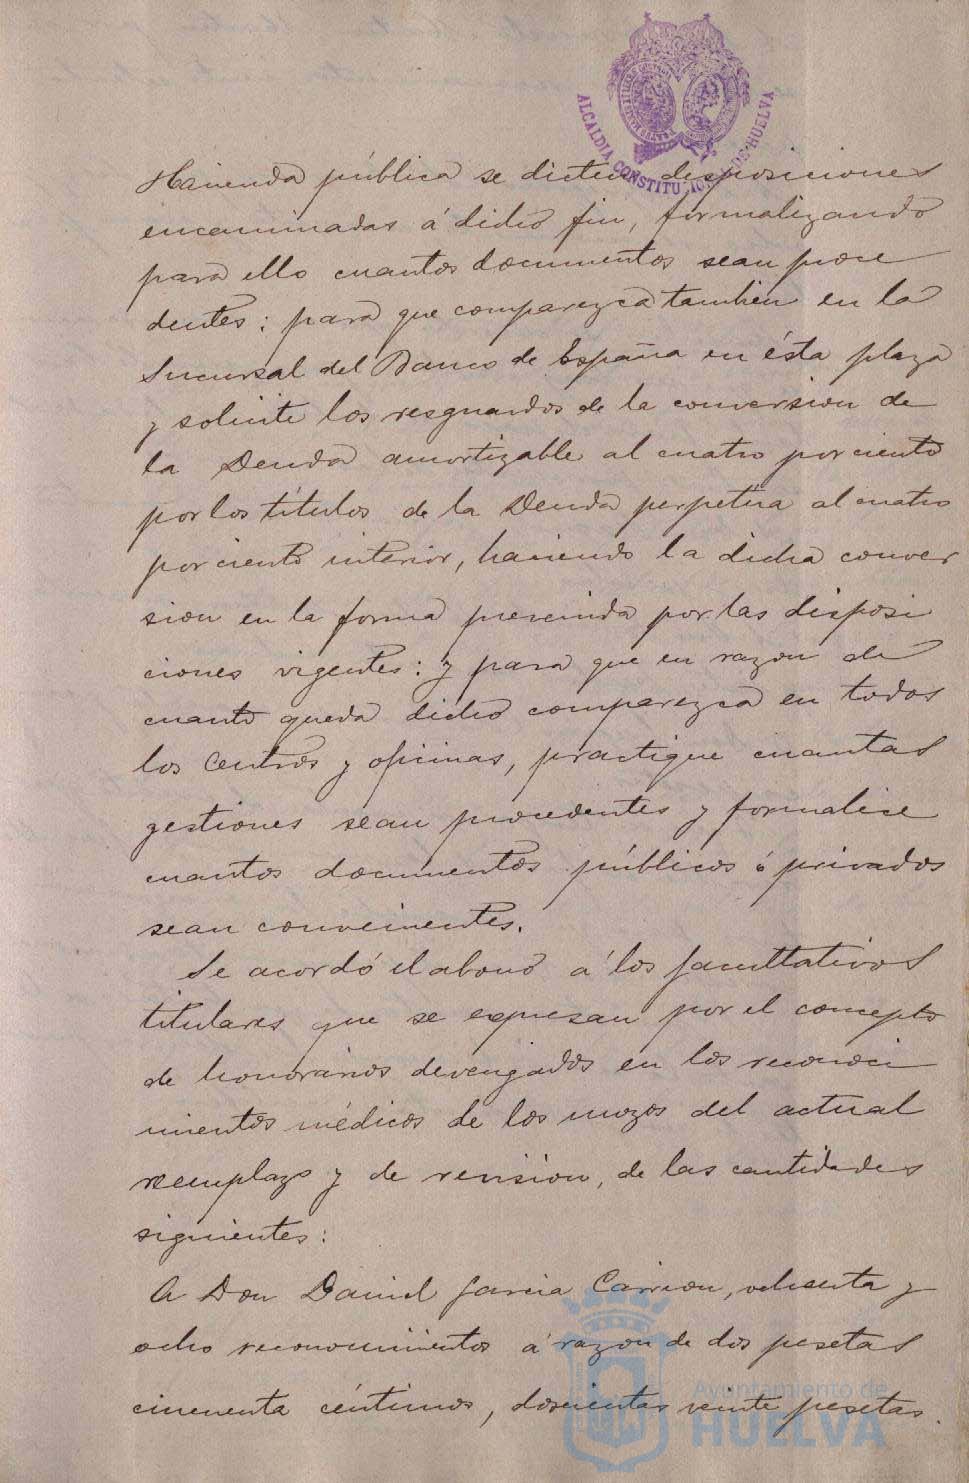 ALCALDIA CONSTITUCIONAL DE HUELVA
Hacienda pública se dicten disposiciones
encaminadas á dicho fin, formalizando
para ello cuantos documentos sean proce
dentes; para que comparezca tambien en la
Sucursal del Banco de España en ésta plaza
y solicite los resguardos de la conversion de
la Deuda amortizable al cuatro por ciento
por los títulos de la Deuda perpetúa al cuatro
por ciento interior, haciendo la dicha conver
sion en la forma prevenida por las disposi
ciones vigentes: y para que en razon de
cuanto queda dicho comparezca en todos
los Centros y oficinas, practique cuantas
gestiones sean procedentes y formalice
cuantos documentos públicos ó privados
sean convenientes.
Se acordó el abono á los facultativos
titulares que se expresan por el concepto
de honorarios devengados en los reconoci
mientos médicos de los mozos del actual
reemplazo y de revision, de las cantidades
siguientes:
A Don Daniel Garcia Carrion, ochenta y
ocho reconocimientos á razon de dos pesetas
cincuenta céntimos, doscientas veinte pesetas.
Ayuntamiento de
HUELVA